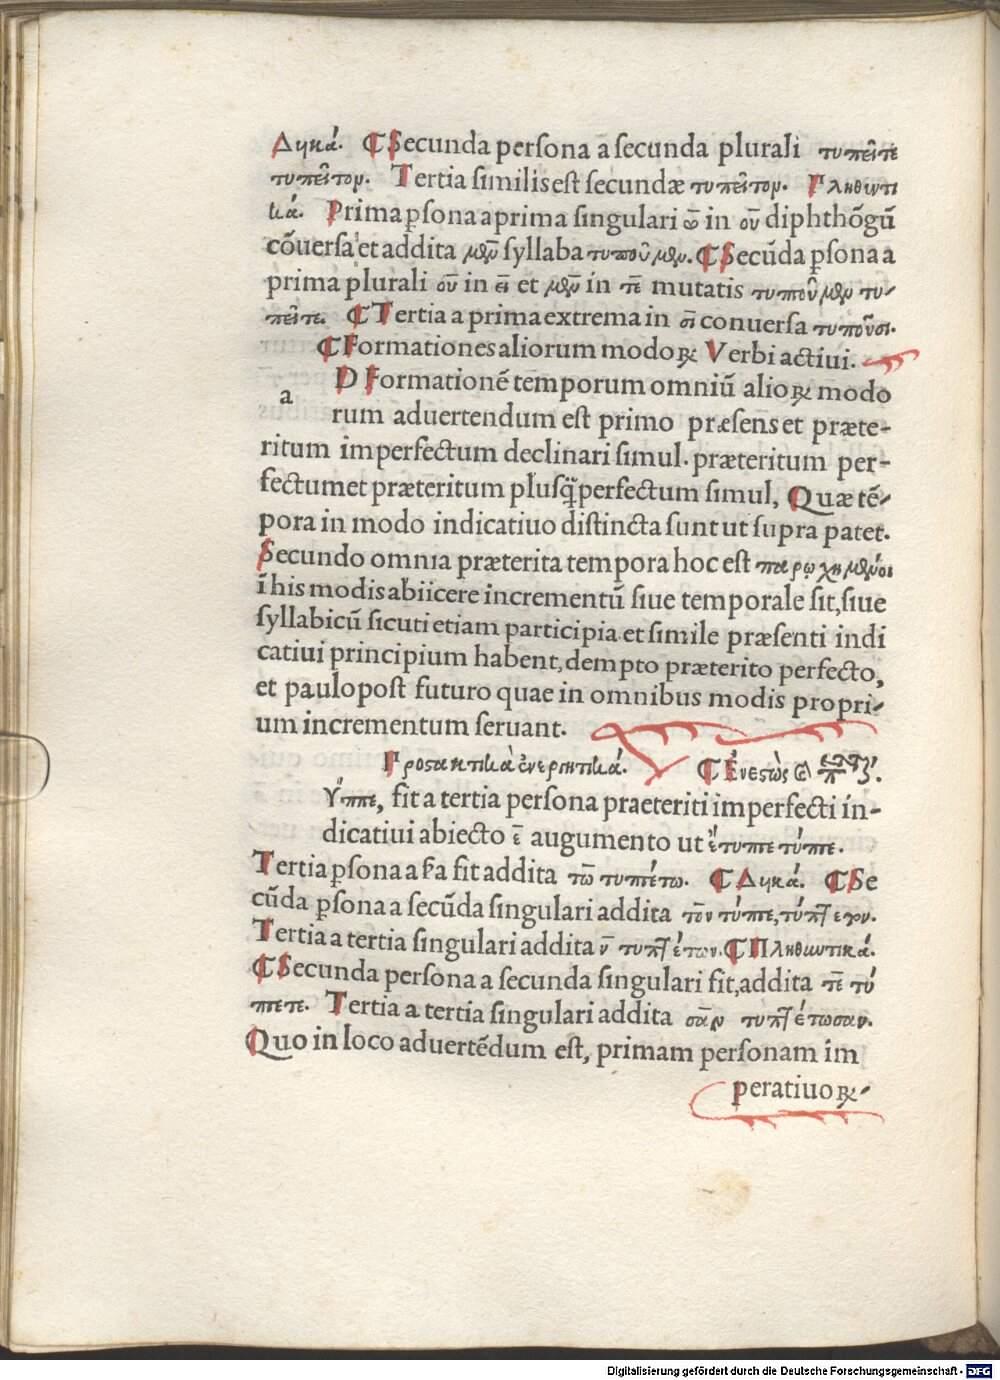 Δυικά. ¶ Secunda persona a secunda plurali τυπεῖτε
τυπεῖτον. Tertia similis est secundæ τυπεῖτον. Πληθυντι
κά. Prima p̲sona a prima singulari ω̄ in οῡ diphthōgū
cōuersa et addita μεν̄ syllaba τυποῦμεν. ¶ Secūda p̲sona a
prima plurali οῡ in εῑ et μεν̄ in τε̄ mutatis τυποῦμεν τυ-
πεῖτε. ¶ Tertia a prima extrema in σῑ conuersa τυποῦσι.
¶ Formationes aliorum modoꝝ Verbi actiui.
a D Formationē temporum omniū alioꝝ modo
rum aduertendum est primo præsens et præte-
ritum imperfectum declinari simul. præteritum per-
fectum et præteritum plusq̃perfectum simul, Quæ tē-
pora in modo indicatiuo distincta sunt ut supra patet.
Secundo omnia præterita tempora hoc est παρῳχημένοι
ī his modis abiicere incrementū siue temporale sit, siue
syllabicū sicuti etiam participia et simile præsenti indi
catiui principium habent, dempto præterito perfecto,
et paulopost futuro quae in omnibus modis propri-
um incrementum seruant.
Προστακτικὰ ἐνεργητικά. ¶ Ἐνεστὼς
Τύπτε, fit a tertia persona praeteriti imperfecti in-
dicatiui abiecto ε̄ augumento ut ἔτυπτε τύπτε.
Tertia p̲sona a ꝓa fit addita τω̄ τυπτέτω. ¶ Δυικά. ¶ Se
cūda p̲sona a secūda singulari addita τον̄ τύπτε, τύπτετον.
Tertia a tertia singulari addita ν̄ τυπτέτων. ¶ Πληθυντικά.
¶ Secunda persona a secunda singulari fit, addita τε̄ τύ
πτετε. Tertia a tertia singulari addita σαν̄ τυπτέτωσαν.
Quo in loco aduertēdum est, primam personam im
peratiuoꝝ-
Digitalisierung gefördert durch die Deutsche Forschungsgemeinschaft - DFG